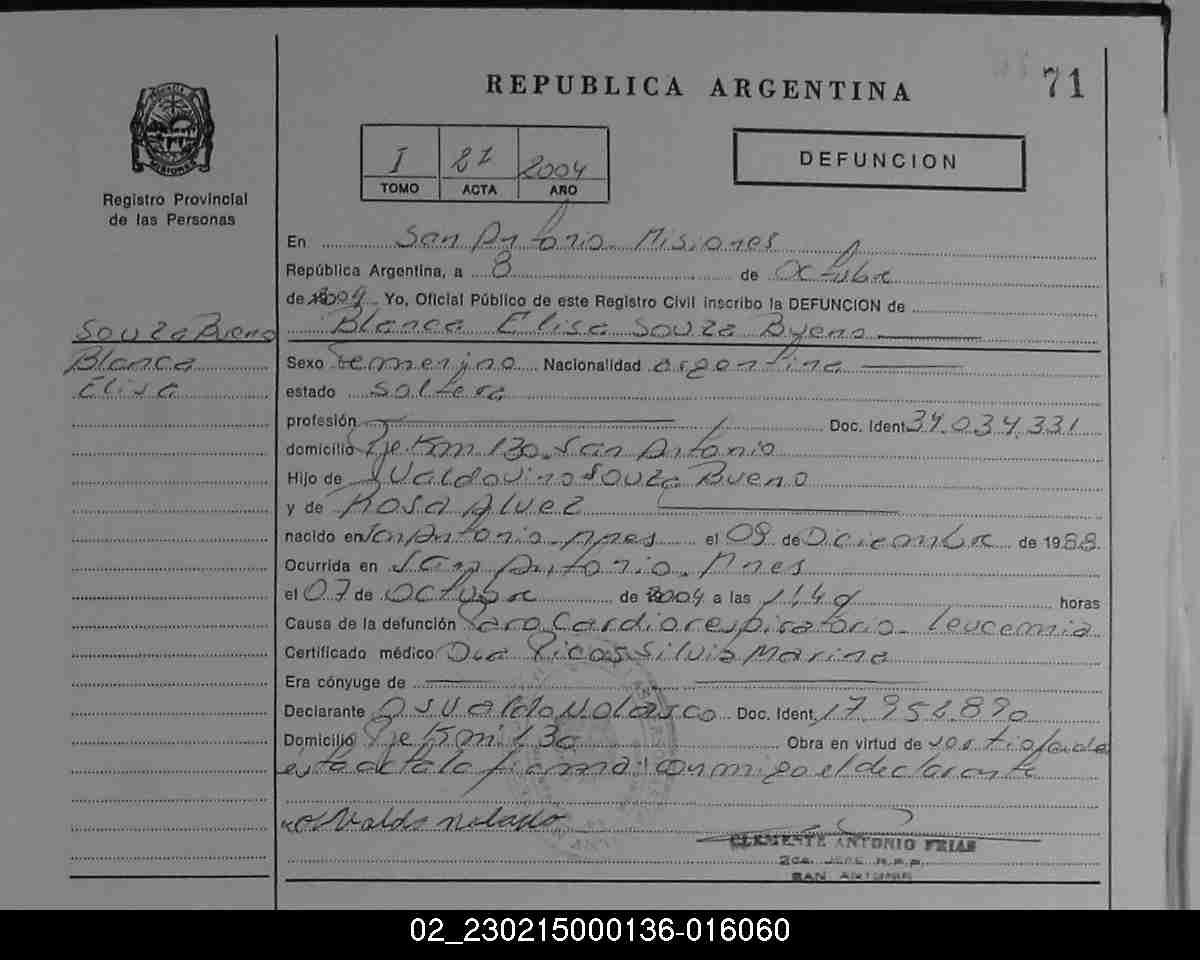 REPUBLICA ARGENTINA
71
I 21 2004
TOMO ACTA AÑO
DEFUNCION
Registro Provincial
de las Personas
En San Antonio Misiones
República Argentina, a 8 de Octubre
de 2004 Yo, Oficial Público de este Registro Civil inscribo la DEFUNCION de
Blanca Elisa Souza Bueno
Souza Bueno
Blanca
Elisa
Sexo Femenino Nacionalidad argentina
estado soltera
profesión Doc. Ident. 34.034.331
domicilio Pje. Km 130. San Antonio
Hijo de Valdovino Souza Bueno
y de Rosa Alvez
nacido en San Antonio. Mnes el 09 de Diciembre de 1988
Ocurrida en San Antonio. Mnes
el 07 de Octubre de 2004 a las horas
Causa de la defunción Paro Cardiorespiratorio - leucemia
Certificado médico Dra Picas Silvia Marina
Era cónyuge de
Declarante Osvaldo Nolasco Doc. Ident. 17.956.890
Domicilio Pje Km 130 Obra en virtud de
esta acta la firma conmigo el declarante
Osvaldo Nolasco
CLEMENTE ANTONIO FRIAS
SAN ANTONIO
02_230215000136-016060